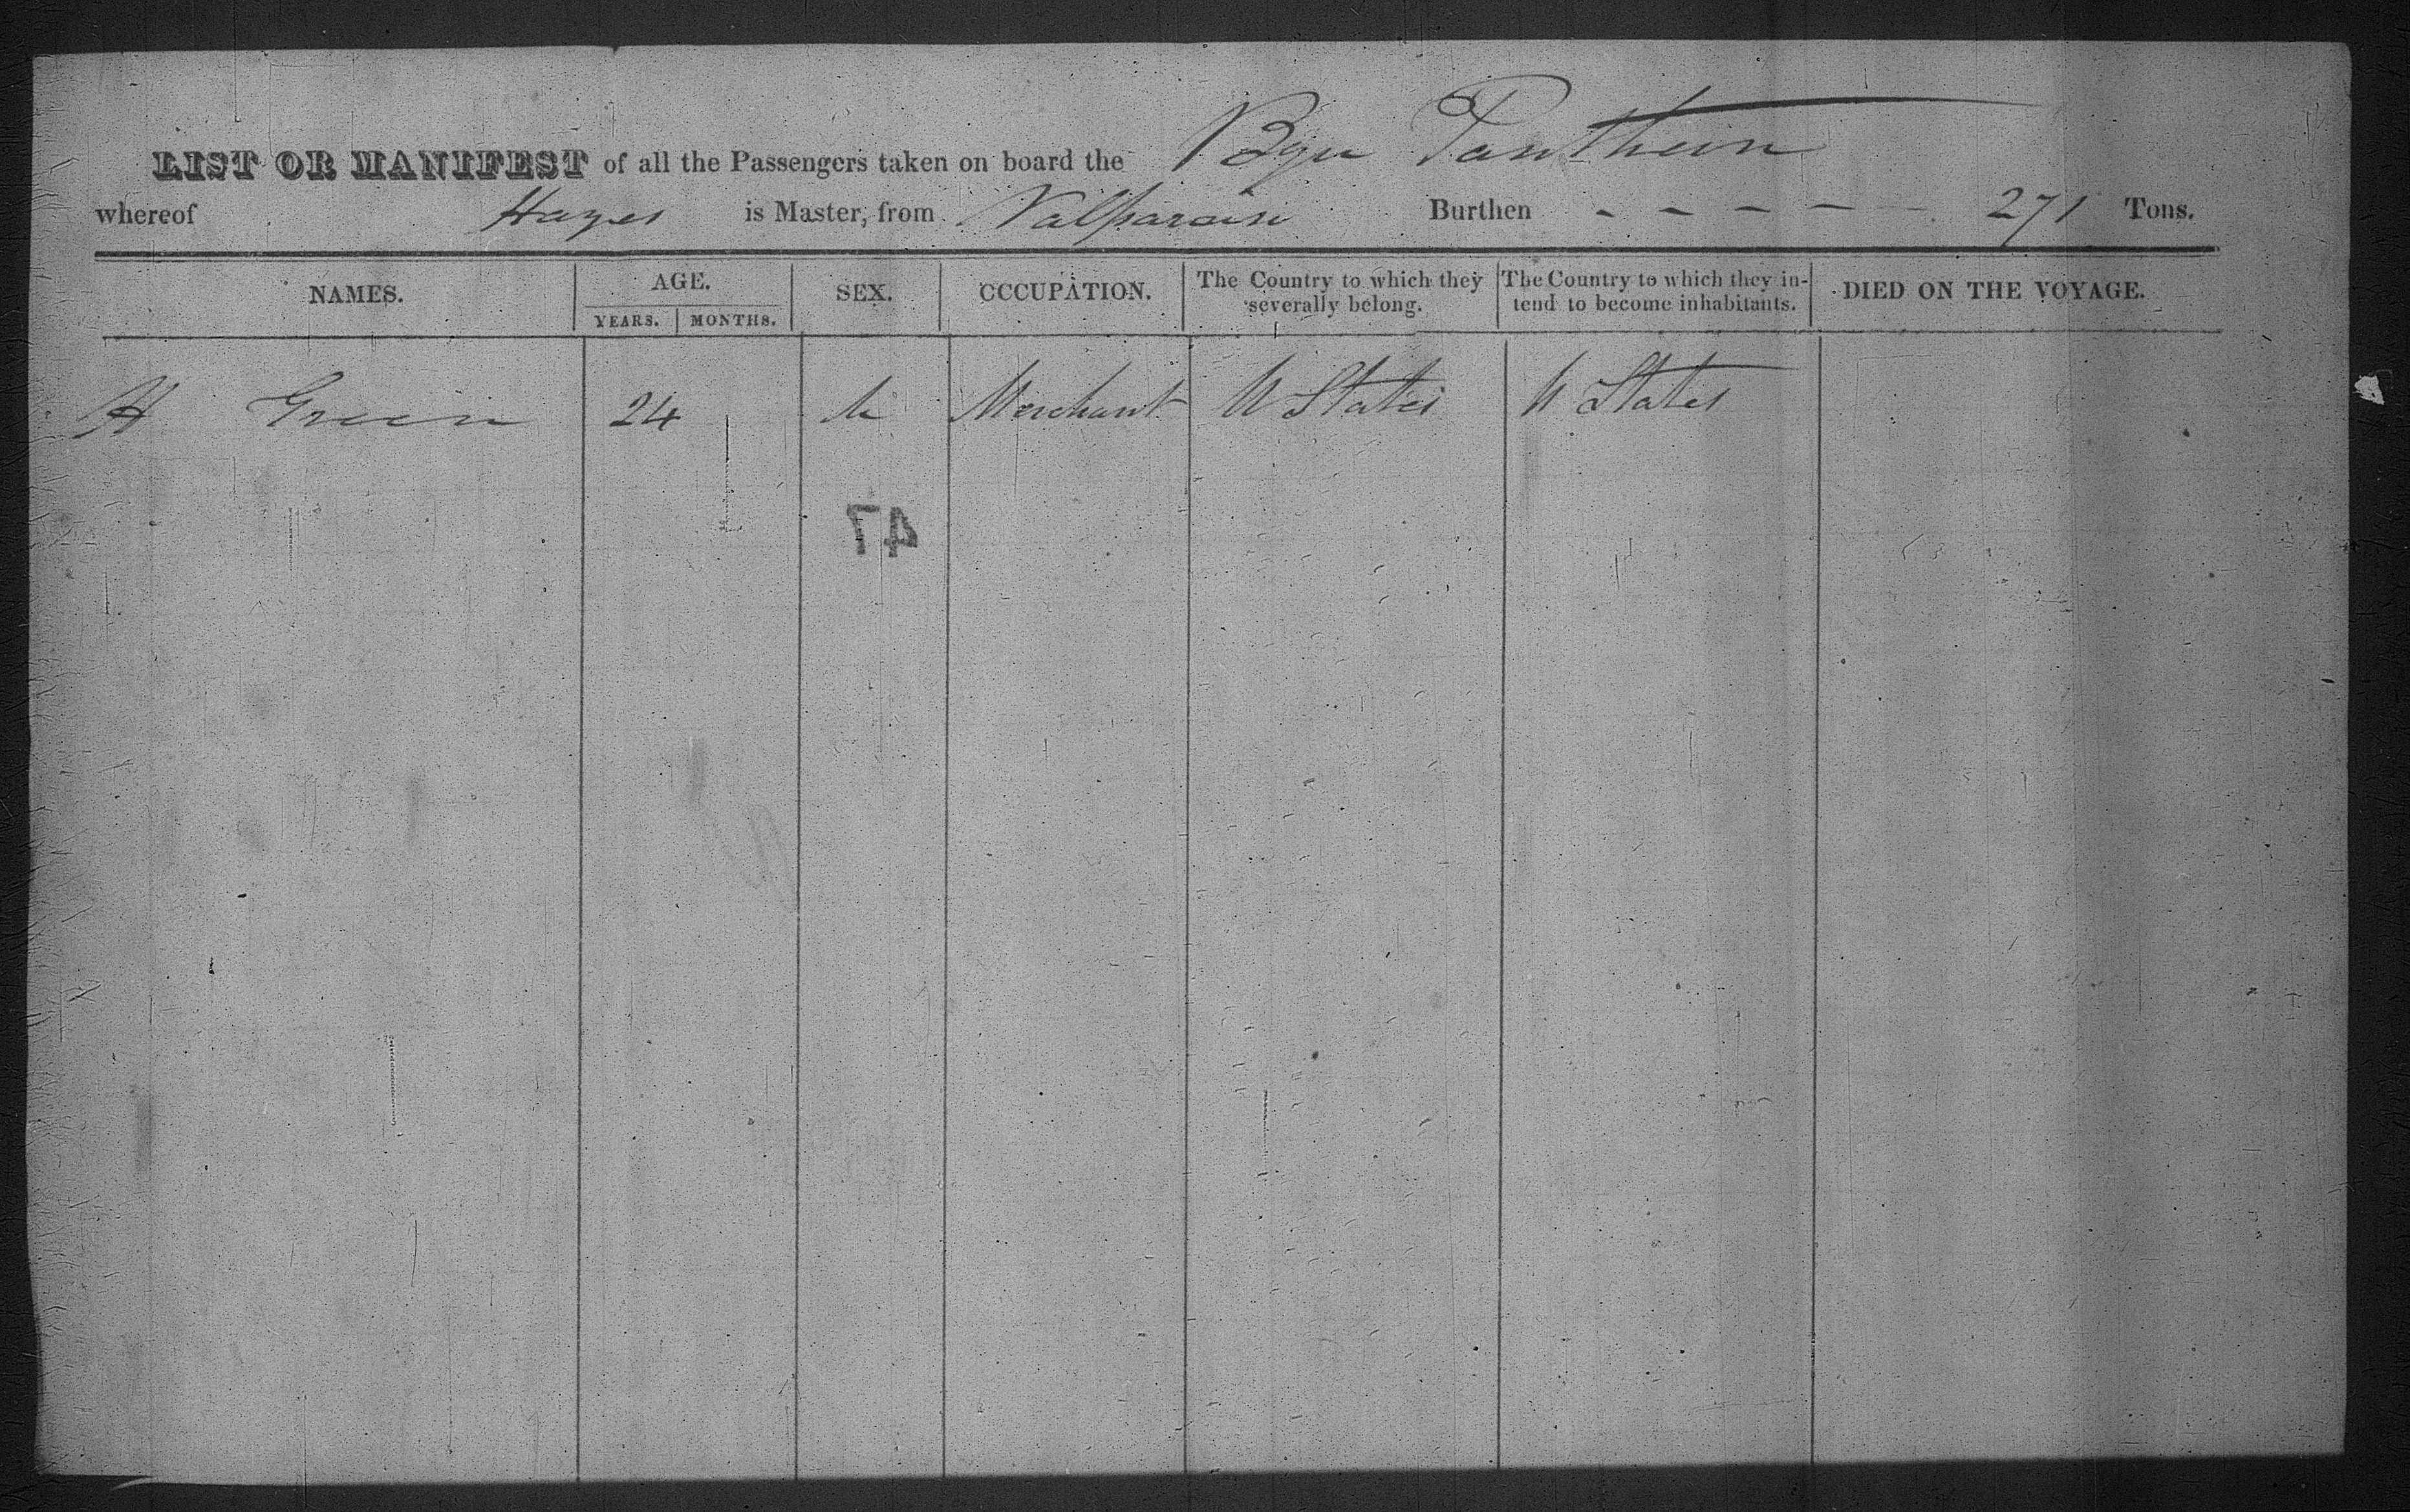 LIST OR MANIFEST of all the Passengers taken on board the Bgu Pantheon
whereof Hayes is Master, from Valparaiso Burthen - - - - - 271 Tons.
NAMES. AGE. SEX. OCCUPATION. The Country to which they severally belong. The Country to which they intend to become inhabitants. DIED ON THE VOYAGE.
YEARS. MONTHS.
H Green 24 M Merchant U States U States
47